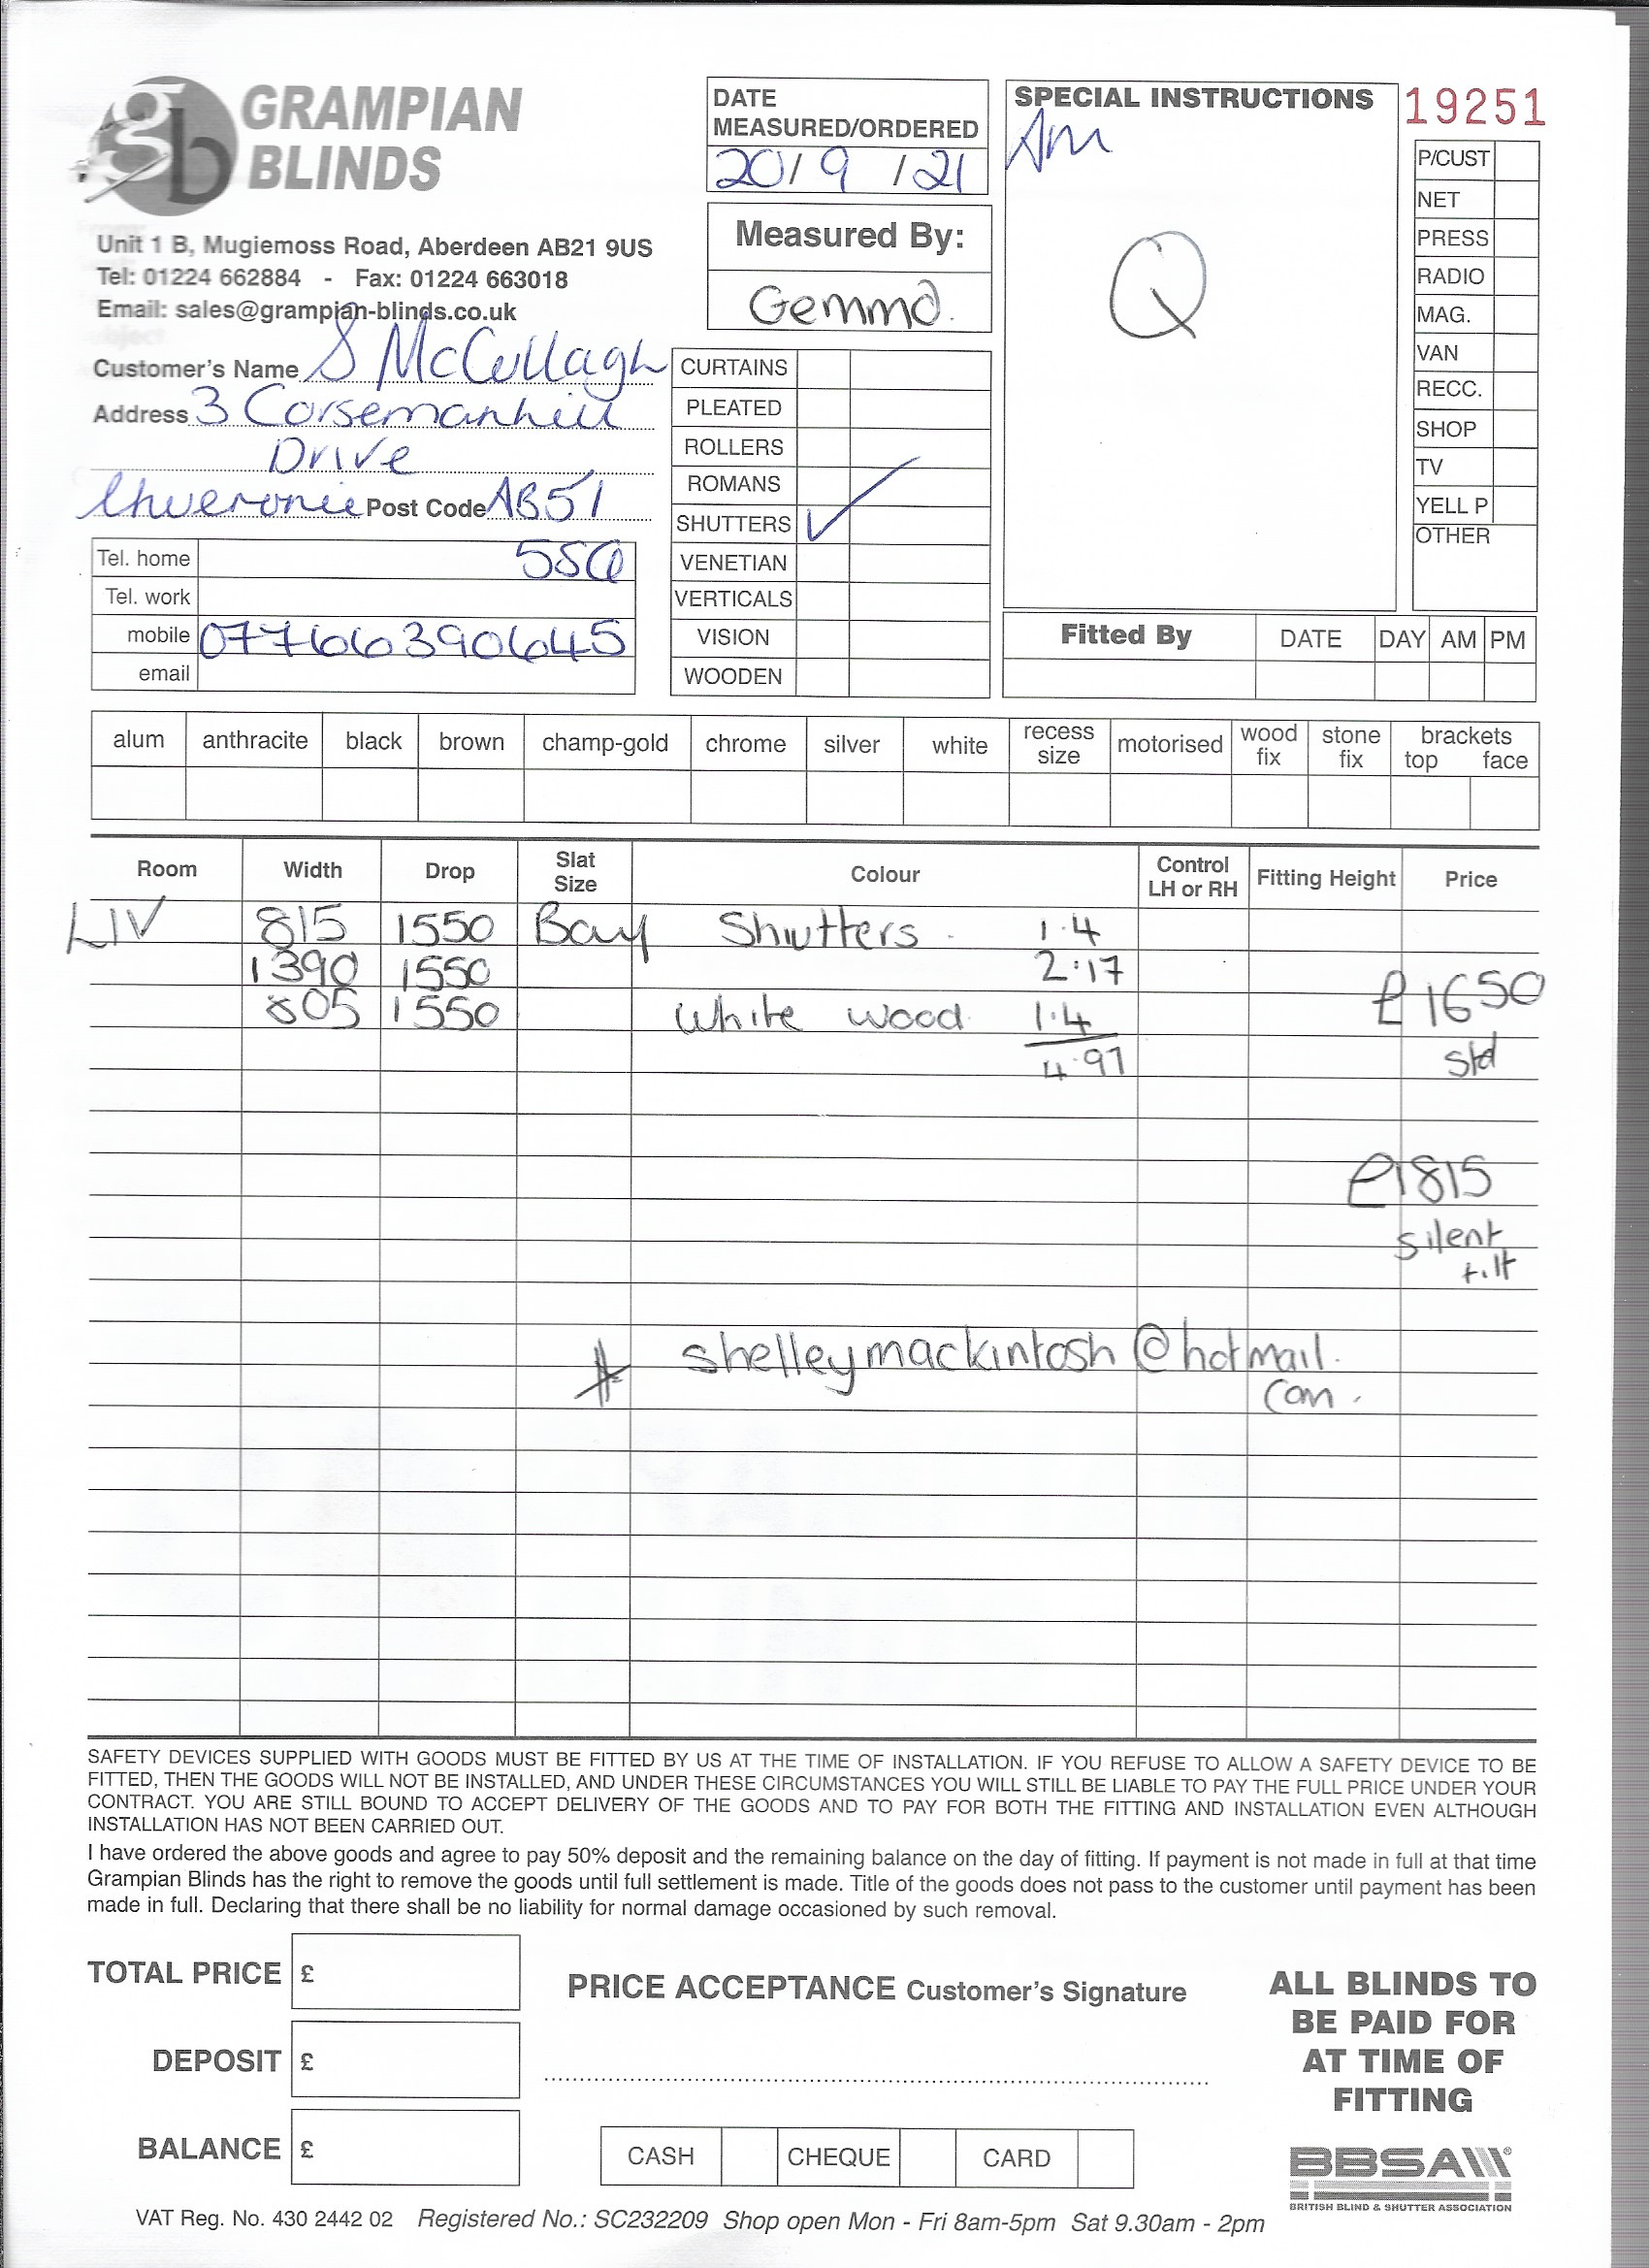 gb GRAMPIAN
BLINDS
Unit 1 B, Mugiemoss Road, Aberdeen AB21 9US
Tel: 01224 662884 - Fax: 01224 663018
Email: sales@grampian-blinds.co.uk
DATE
MEASURED/ORDERED
20/9/21
Measured By:
Gemma.
SPECIAL INSTRUCTIONS
Am
Q
19251
P/CUST
NET
PRESS
RADIO
MAG.
VAN
RECC.
SHOP
TV
YELL P
OTHER
Customer's Name S McCullagh
Address 3 Corsemanhill
Drive
Inverurie Post Code AB51
Tel. home 5SQ
Tel. work
mobile 07766390645
email
CURTAINS
PLEATED
ROLLERS
ROMANS
SHUTTERS ✓
VENETIAN
VERTICALS
VISION
WOODEN
Fitted By DATE DAY AM PM
alum anthracite black brown champ-gold chrome silver white recess size motorised wood fix stone fix brackets top face
Room Width Drop Slat Size Colour Control LH or RH Fitting Height Price
LIV 815 1550 Bay Shutters. 1.4
1390 1550 2.17
805 1550 White wood. 1.4 £1650
4.97 std
£1815
silent
tilt
shelleymackintosh@hotmail.
com.
SAFETY DEVICES SUPPLIED WITH GOODS MUST BE FITTED BY US AT THE TIME OF INSTALLATION. IF YOU REFUSE TO ALLOW A SAFETY DEVICE TO BE
FITTED, THEN THE GOODS WILL NOT BE INSTALLED, AND UNDER THESE CIRCUMSTANCES YOU WILL STILL BE LIABLE TO PAY THE FULL PRICE UNDER YOUR
CONTRACT. YOU ARE STILL BOUND TO ACCEPT DELIVERY OF THE GOODS AND TO PAY FOR BOTH THE FITTING AND INSTALLATION EVEN ALTHOUGH
INSTALLATION HAS NOT BEEN CARRIED OUT.
I have ordered the above goods and agree to pay 50% deposit and the remaining balance on the day of fitting. If payment is not made in full at that time
Grampian Blinds has the right to remove the goods until full settlement is made. Title of the goods does not pass to the customer until payment has been
made in full. Declaring that there shall be no liability for normal damage occasioned by such removal.
TOTAL PRICE £
DEPOSIT £
BALANCE £
PRICE ACCEPTANCE Customer's Signature
CASH CHEQUE CARD
ALL BLINDS TO
BE PAID FOR
AT TIME OF
FITTING
BBSA
BRITISH BLIND & SHUTTER ASSOCIATION
VAT Reg. No. 430 2442 02 Registered No.: SC232209 Shop open Mon - Fri 8am-5pm Sat 9.30am - 2pm